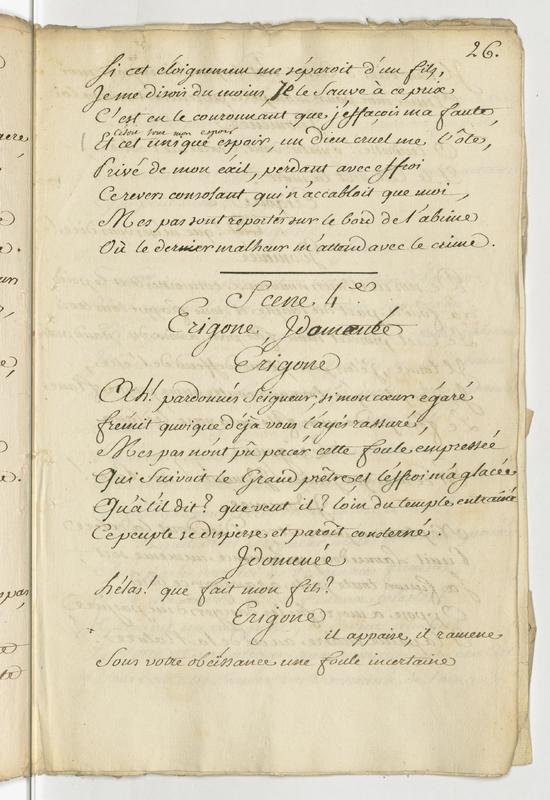 26.
Si cet éloignement me séparoit d'un fils,
Je me disois du moins, Je le Sauve à ce prix
C'est en le couronnant que j'effaçois ma faute,
Et cet unique espoir, un Dieu cruel me l'ôte,
mon espoir
Privé de mon exil, perdant avec effroi
Ce revers consolant qui n'accabloit que moi,
Mes pas sont reportés sur le bord de l'abime
Où le dernier malheur m'attend avec le crime.
Scene 4.e
Erigone, Idomenée
Erigone
Ah! pardonnés Seigneur, si mon cœur égaré
frémit quoique déja vous l'ayés rassuré,
Mes pas n'ont pû percer cette foule empressée
Qui Suivoit le Grand prêtre et l'effroi m'a glacée
Qu'a t'il dit? que veut il? loin du temple entrainé
Ce peuple se disperse et paroît consterné.
Idomenée
hélas! que fait mon fils?
Erigone
il appaise, il ramene
Sous votre obéissance une foule incertaine
acre
pas